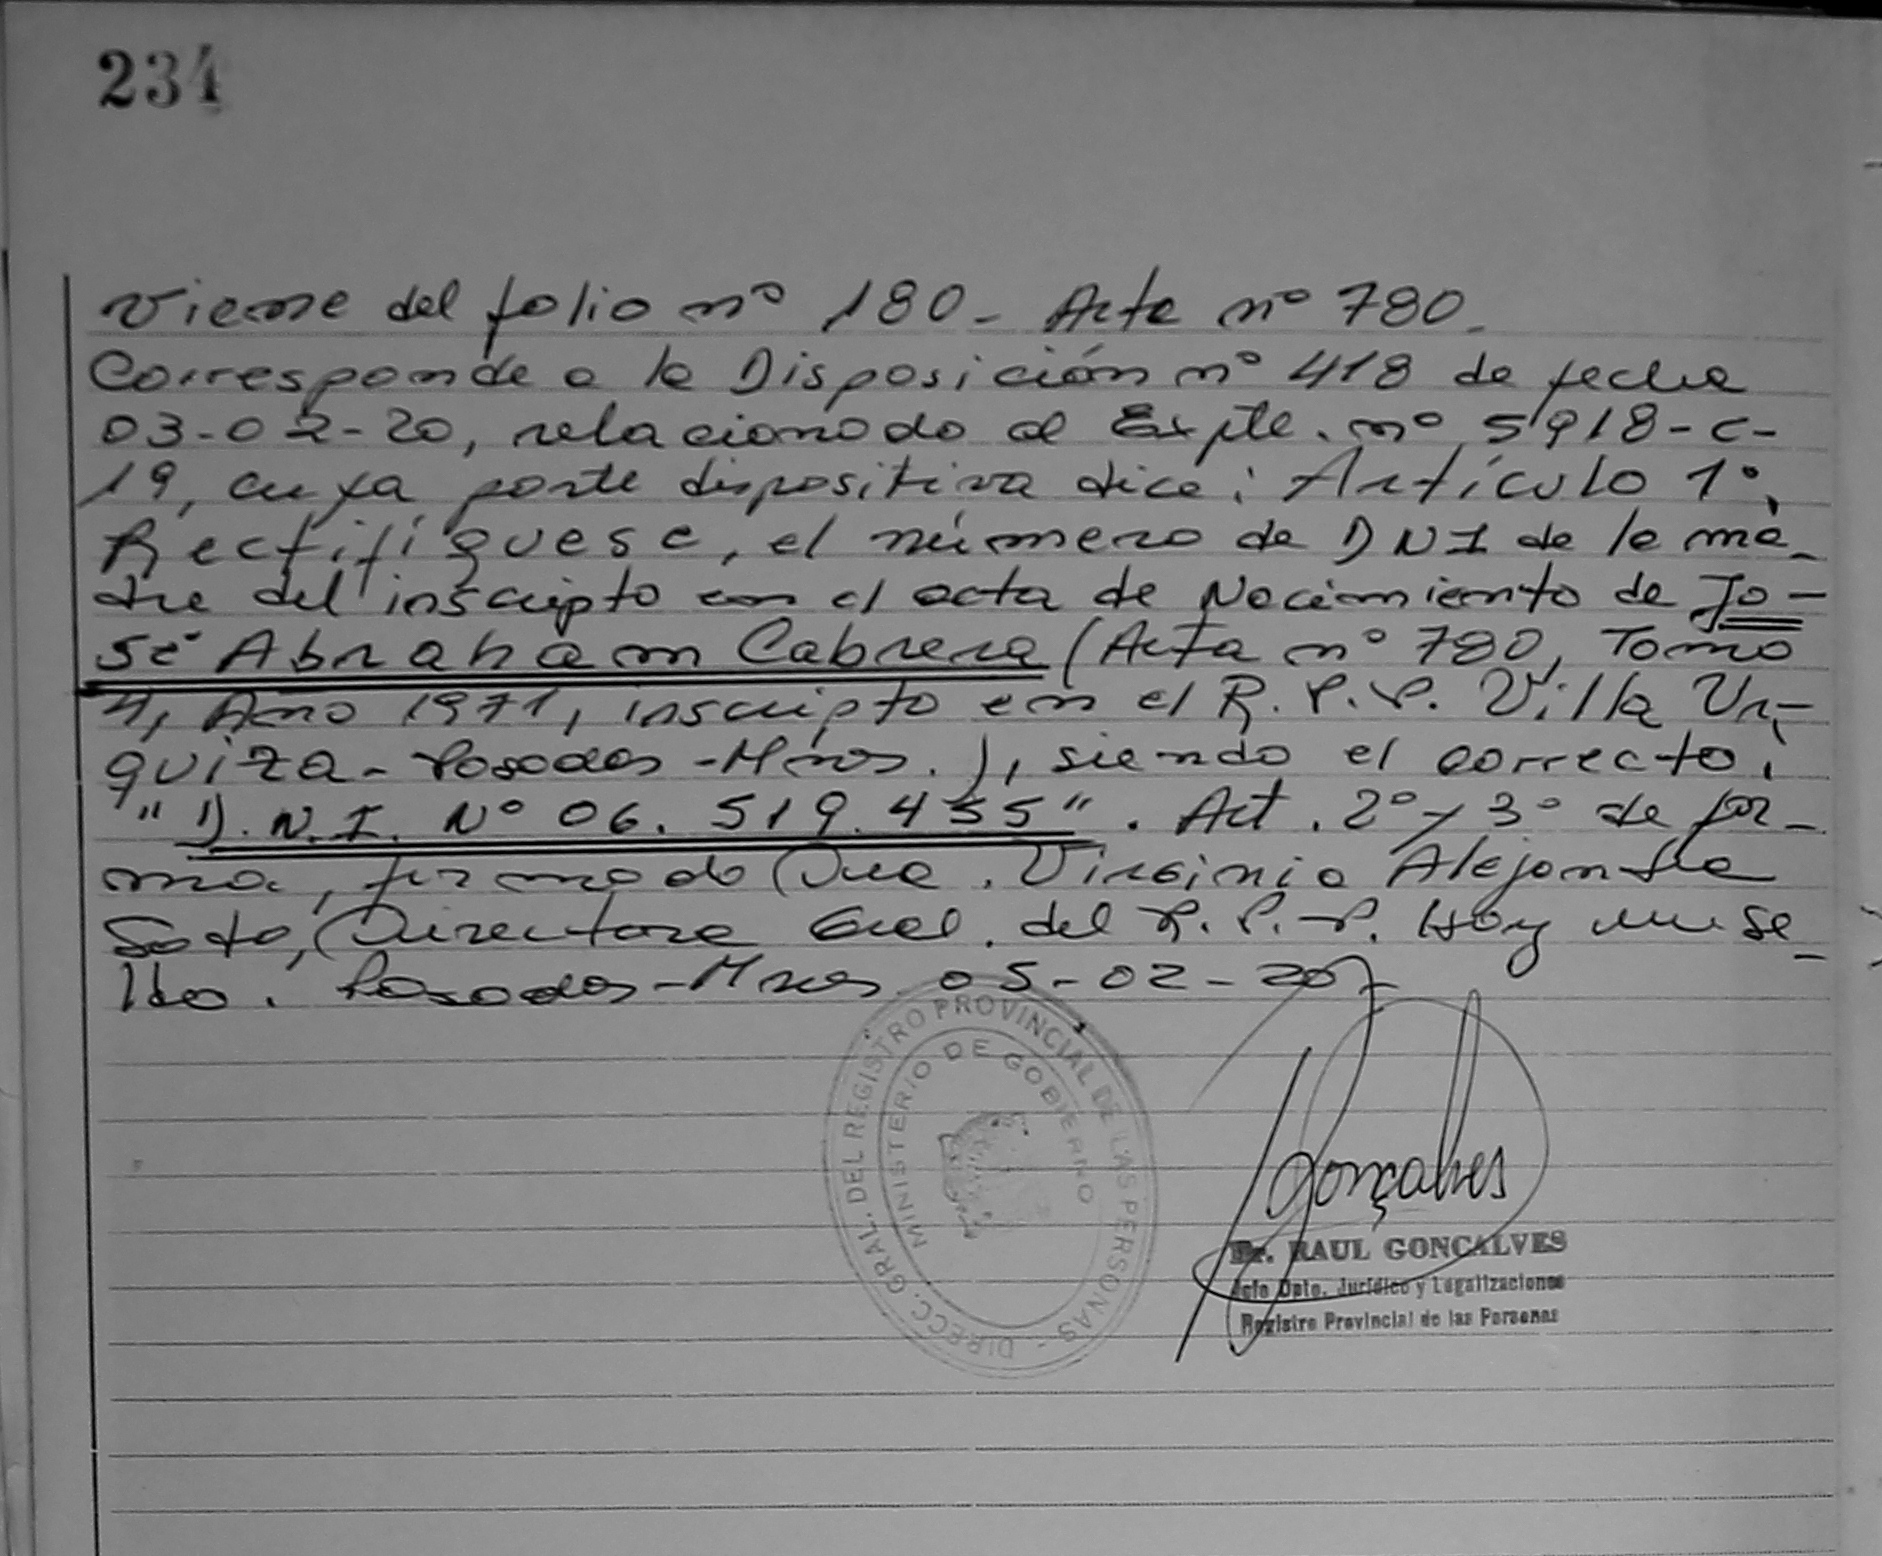 234
Viene del folio nº 180 - Acta nº 780.
Corresponde a la Disposición nº 418 de fecha
03-02-20, relacionado al Expte. nº 5918-C-
19, cuya parte dispositiva dice: Artículo 1º,
Rectifíquese, el número de DNI de la ma-
dre del inscripto en el acta de Nacimiento de Jo-
sé Abraham Cabrera (Acta nº 780, Tomo
4, Año 1971, inscripto en el R.P.P. Villa Ur-
quiza - Posadas - Mnes.), siendo el correcto:
"D.N.I. Nº 06.519.455". Art. 2º y 3º de for-
ma, firmado Dra. Virginia Alejandra
Soto, Directora Gral. del R.P.P. Hoy
Posadas - Mnes 05-02-20
DIRECC. GRAL. DEL REGISTRO PROVINCIAL DE LAS PERSONAS -
MINISTERIO DE GOBIERNO
Gonçalves
Dr. RAUL GONCALVES
Jefe Dpto. Jurídico y Legalizaciones
Registro Provincial de las Personas